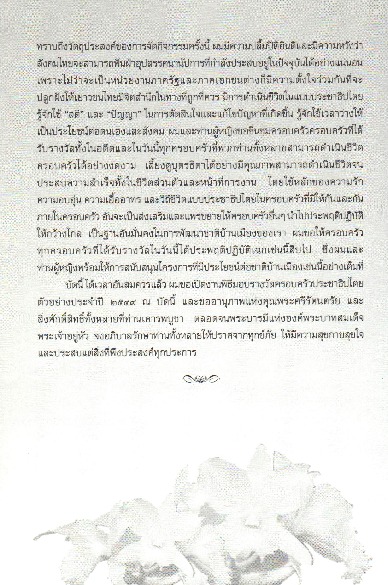 ทราบถึงวัตถุประสงค์ของการจัดกิจกรรมครั้งนี้ ผมมีความปลื้มปีติยินดีและมีความหวังว่า
สังคมไทยจะสามารถฟันฝ่าอุปสรรคนานัปการที่กำลังประสบอยู่ในปัจจุบันได้อย่างแน่นอน
เพราะไม่ว่าจะเป็นหน่วยงานภาครัฐและภาคเอกชนต่างก็มีความตั้งใจร่วมกันที่จะ
ปลูกฝังให้เยาวชนไทยมีจิตสำนึกในทางที่ถูกที่ควร มีการดำเนินชีวิตในแบบประชาธิปไตย
รู้จักใช้ "สติ" และ "ปัญญา" ในการตัดสินใจและแก้ไขปัญหาที่เกิดขึ้น รู้จักใช้เวลาว่างให้
เป็นประโยชน์ต่อตนเองและสังคม ผมและท่านผู้หญิงขอชื่นชมครอบครัวครอบครัวที่ได้
รับรางวัลทั้งในอดีตและในวันนี้ทุกครอบครัวที่พวกท่านทั้งหลายสามารถดำเนินชีวิต
ครอบครัวได้อย่างงดงาม เลี้ยงดูบุตรธิดาได้อย่างมีคุณภาพสามารถดำเนินชีวิตจน
ประสบความสำเร็จทั้งในชีวิตส่วนตัวและหน้าที่การงาน โดยใช้หลักของความรัก
ความอบอุ่น ความเอื้ออาทร และวิถีชีวิตแบบประชาธิปไตยในครอบครัวที่มีให้กันและกัน
ภายในครอบครัว อันจะเป็นส่งเสริมและแพร่ขยายให้ครอบครัวอื่นๆ นำไปประพฤติปฏิบัติ
ให้กว้างไกล เป็นฐานอันมั่นคงในการพัฒนาชาติบ้านเมืองของเรา ผมขอให้ครอบครัว
ทุกครอบครัวที่ได้รับรางวัลในวันนี้ได้ประพฤติปฏิบัติเฉกเช่นนี้สืบไป ซึ่งผมและ
ท่านผู้หญิงพร้อมให้การสนับสนุนโครงการที่มีประโยชน์ต่อชาติบ้านเมืองเช่นนี้อย่างเต็มที่
บัดนี้ ได้เวลาอันสมควรแล้ว ผมขอเปิดงานพิธีมอบรางวัลครอบครัวประชาธิปไตย
ตัวอย่างประจำปี ๒๕๔๙ ณ บัดนี้ และขออานุภาพแห่งคุณพระศรีรัตนตรัย และ
สิ่งศักดิ์สิทธิ์ทั้งหลายที่ท่านเคารพบูชา ตลอดจนพระบารมีแห่งองค์พระบาทสมเด็จ
พระเจ้าอยู่หัว จงอภิบาลรักษาท่านทั้งหลายให้ปราศจากทุกข์ภัย ให้มีความสุขกายสุขใจ
และประสบแต่สิ่งที่พึงประสงค์ทุกประการ